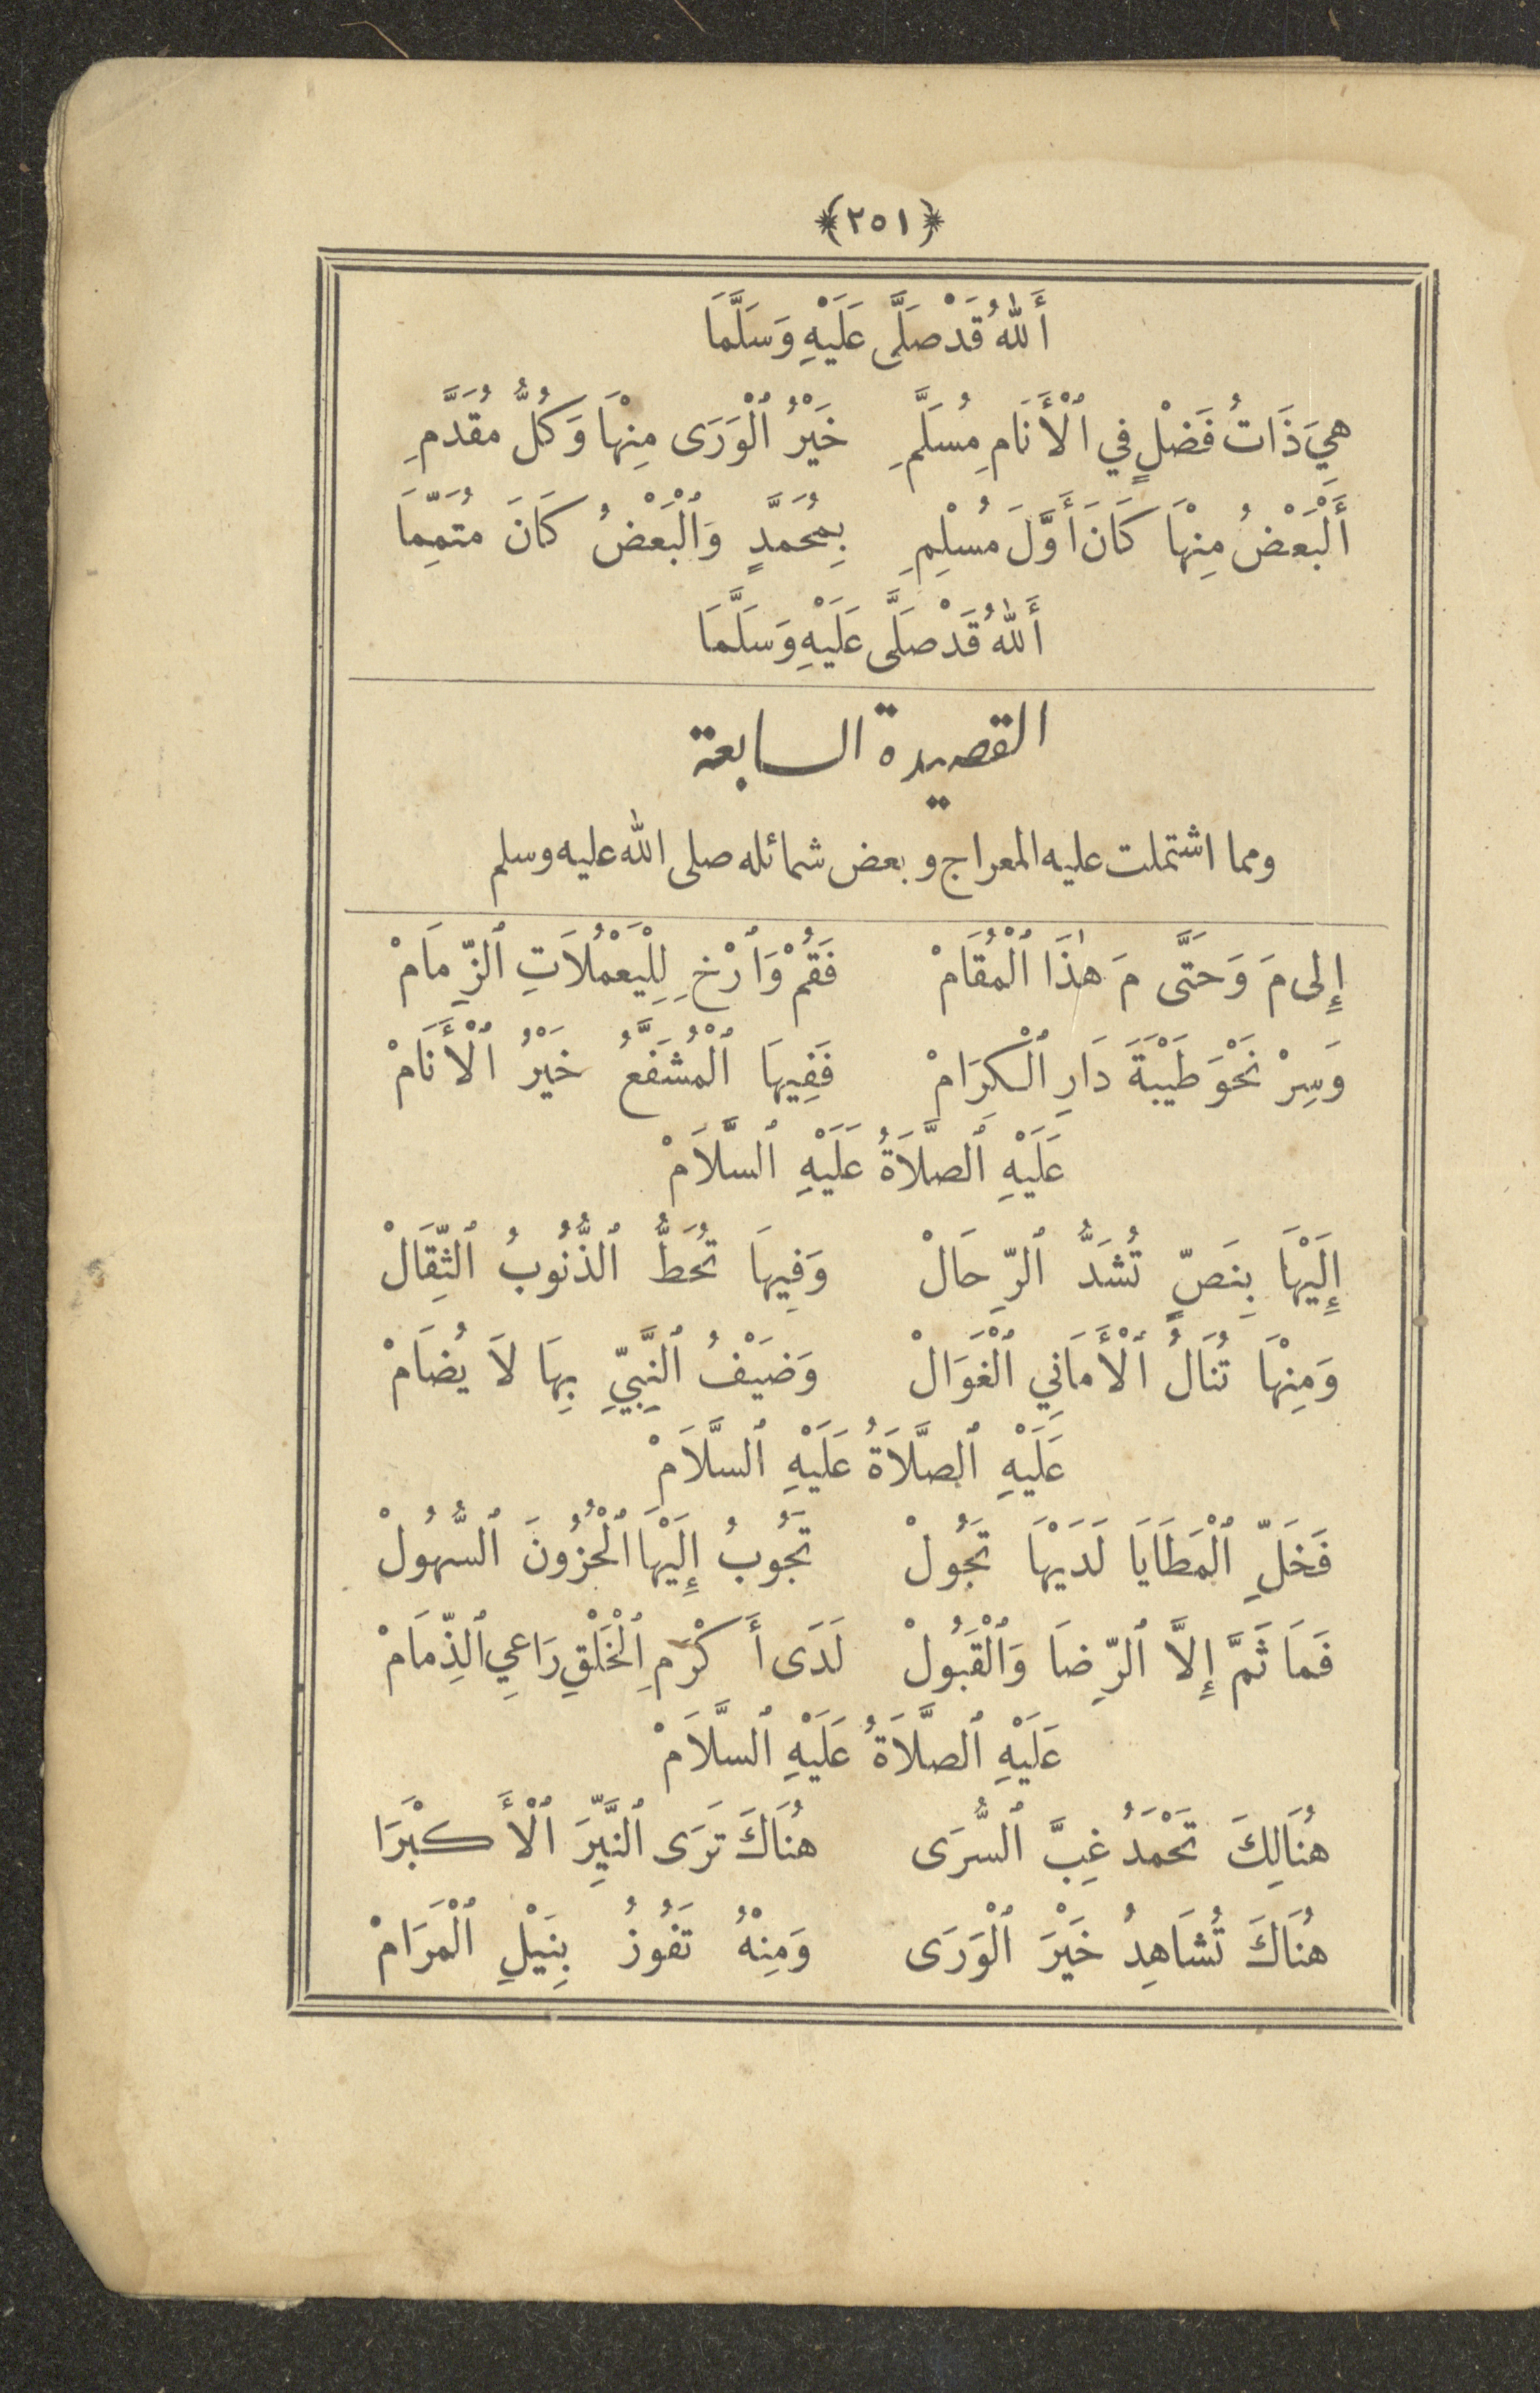 ﴿٢٥١﴾
أَللهُ قَدْ صَلَّى عَلَيْهِ وَسَلَّمَا
هِيَ ذَاتُ فَضْلٍ فِي ٱلْأَنَامِ مُسَلَّمِ خَيْرُ ٱلْوَرَى مِنْهَا وَكُلُّ مُقَدَّمِ
أَلْبَعْضُ مِنْهَا كَانَ أَوَّلَ مُسْلِمِ بِمُحَمَّدٍ وَٱلْبَعْضُ كَانَ مُتَمِّمَا
أَللهُ قَدْ صَلَّى عَلَيْهِ وَسَلَّمَا
القصيدة السابعة
ومما اشتملت عليه المعراج وبعض شمائله صلى الله عليه وسلم
إِلى مَ وَحَتَّى مَ هٰذَا ٱلْمُقَامْ فَقُمْ وَٱرْخِ لِلْيَعْمُلَاتِ ٱلزِّمَامْ
وَسِرْ نَحْوَ طَيْبَةَ دَارِ ٱلْكِرَامْ فَفِيهَا ٱلْمُشَفَّعُ خَيْرُ ٱلْأَنَامْ
عَلَيْهِ ٱلصَّلَاةُ عَلَيْهِ ٱلسَّلَامْ
إِلَيْهَا بِنَصٍّ تُشَدُّ ٱلرِّحَالْ وَفِيهَا تُحَطُّ ٱلذُّنُوبُ ٱلثِّقَالْ
وَمِنْهَا تُنَالُ ٱلْأَمَانِي ٱلْغَوَالْ وَضَيْفُ ٱلنَّبِيِّ بِهَا لَا يُضَامْ
عَلَيْهِ ٱلصَّلَاةُ عَلَيْهِ ٱلسَّلَامْ
فَخَلِّ ٱلْمَطَايَا لَدَيْهَا تَجُولْ تَجُوبُ إِلَيْهَا ٱلْحُزُونَ ٱلسُّهُولْ
فَمَا ثَمَّ إِلَّا ٱلرِّضَا وَٱلْقَبُولْ لَدَى أَكْرَمِ ٱلْخَلْقِ رَاعِي ٱلذِّمَامْ
عَلَيْهِ ٱلصَّلَاةُ عَلَيْهِ ٱلسَّلَامْ
هُنَالِكَ تَحْمَدُ غِبَّ ٱلسُّرَى هُنَاكَ تَرَى ٱلنَّيِّرَ ٱلْأَكْبَرَا
هُنَاكَ تُشَاهِدُ خَيْرَ ٱلْوَرَى وَمِنْهُ تَفُوزُ بِنَيْلِ ٱلْمَرَامْ